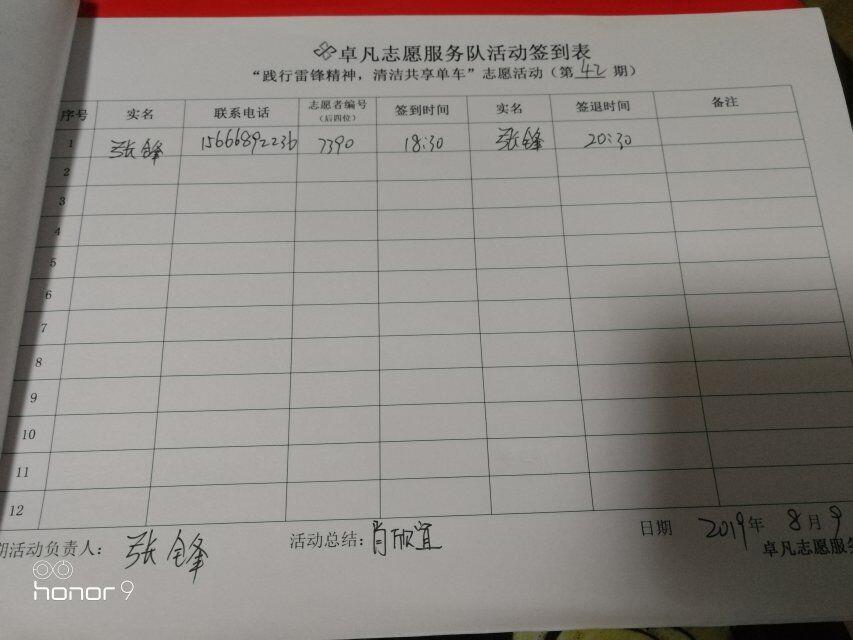 卓凡志愿服务队活动签到表
“践行雷锋精神，清洁共享单车”志愿活动（第 42 期）
序号 实名 联系电话 志愿者编号（后四位） 签到时间 实名 签退时间 备注
1 张锋 15666892236 7390 18:30 张锋 20:30
2
3
4
5
6
7
8
9
10
11
12
期活动负责人： 张锋 活动总结： 肖欣宜 日期 2019年 8月 9
卓凡志愿服务
honor 9